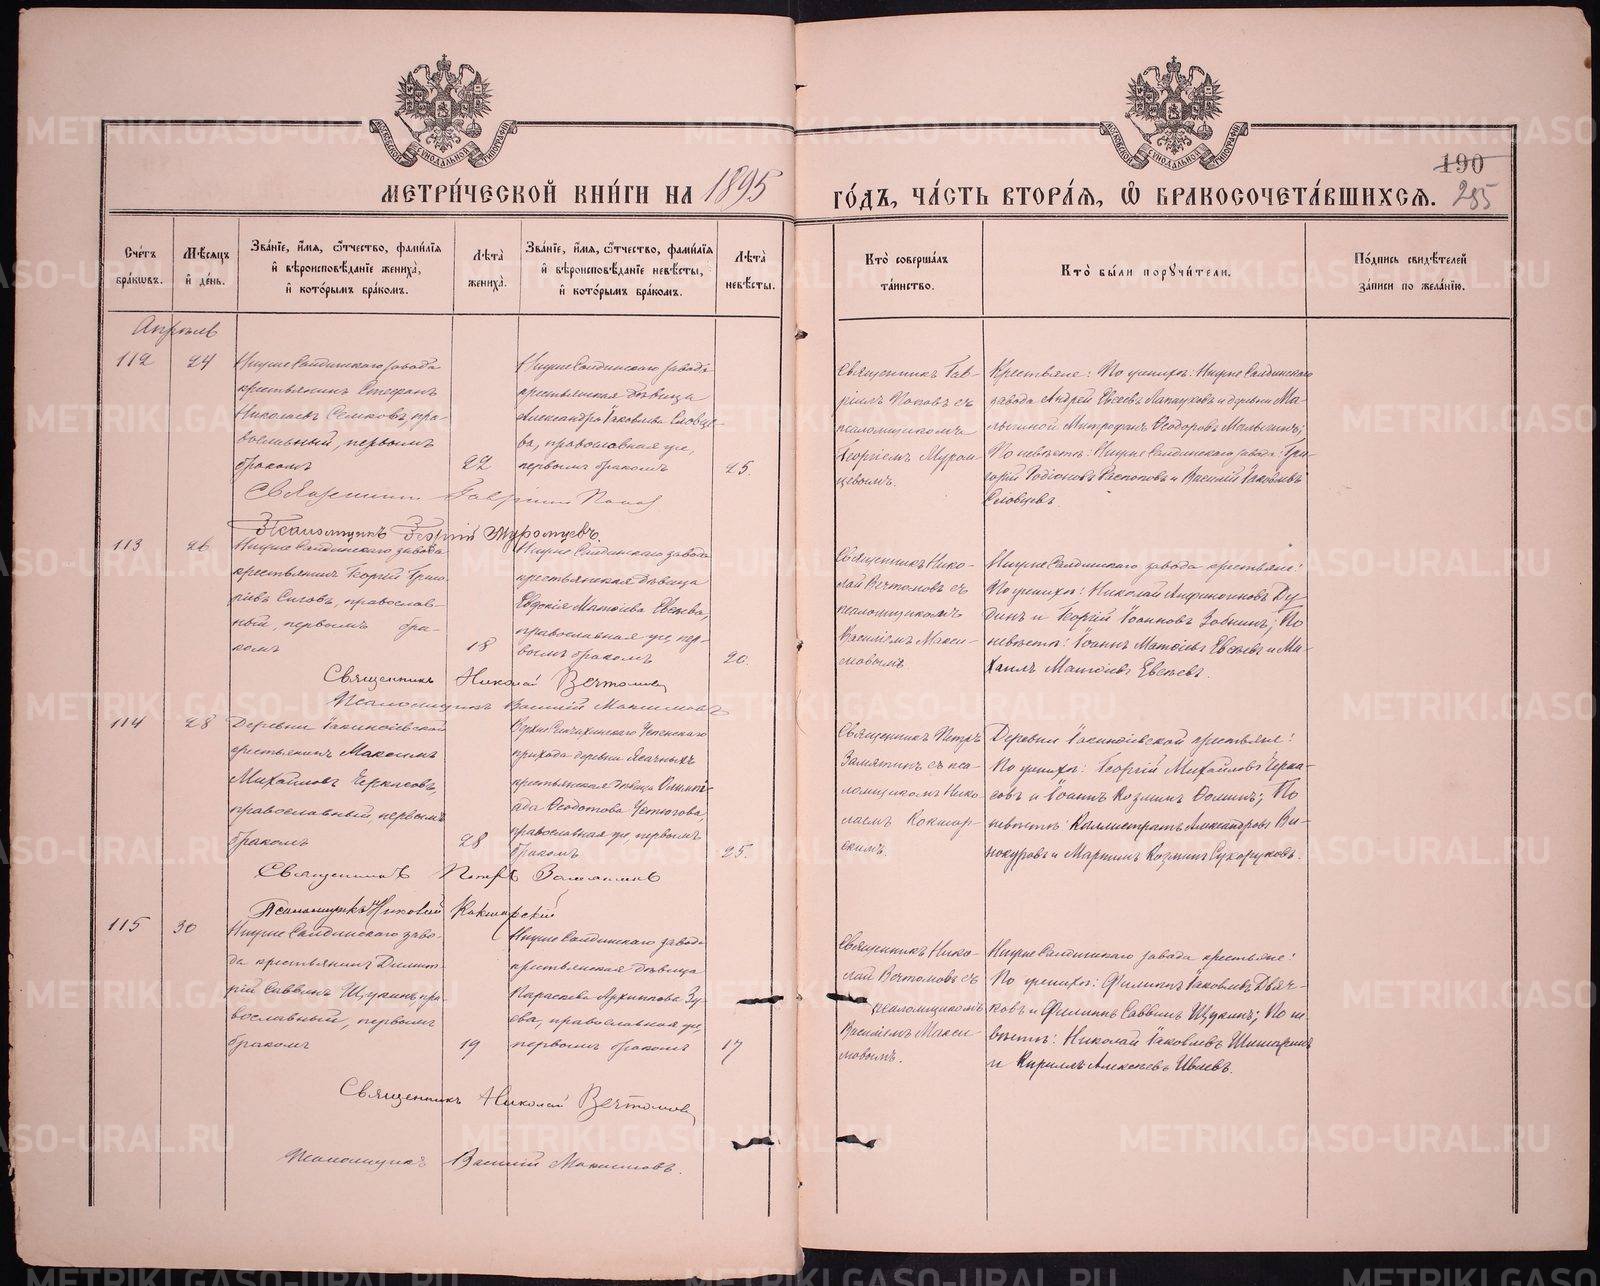 МОСКОВСКОЙ СѴНОДАЛЬНОЙ ТИПОГРАФІИ
МОСКОВСКОЙ СѴНОДАЛЬНОЙ ТИПОГРАФІИ
МЕТРИ́ЧЕСКОЙ КНИ́ГИ НА 1895
ГО́ДЪ, ЧА́СТЬ ВТОРА́Я, Ѽ БРАКОСОЧЕТА́ВШИХСЯ.
190
285
Сче́тъ бра́кѡвъ.
Мѣ́сяцъ и҆ де́нь.
Зва́нїе, и҆́мя, ѻ҆́тчество, фами́лїя и҆ вѣроисповѣ́данїе жениха̀, и҆ кото́рымъ бра́комъ.
Лѣта̀ жениха̀.
Зва́нїе, и҆́мя, ѻ҆́тчество, фами́лїя и҆ вѣроисповѣ́данїе невѣ́сты, и҆ кото́рымъ бра́комъ.
Лѣта̀ невѣ́сты.
Кто̀ соверша́лъ та́инство.
Кто̀ бы́ли порꙋчи́тели.
По́дпись свидѣ́телей за́писи по жела́нїю.
Апрѣль
112
24
Нижне Салдинскаго завода
крестьянинъ Стефанъ
Николаевъ Семковъ, пра-
вославный, первымъ
бракомъ
22
Нижне Салдинскаго завода
крестьянская дѣвица
Александра Іаковлева Словце-
ва, православная же,
первымъ бракомъ
25.
Священникъ Гав-
ріилъ Поповъ съ
псаломщикомъ
Георгіемъ Муром-
цевымъ.
Крестьяне: По женихѣ: Нижне Салдинскаго
завода Андрей Евсеевъ Лапаухов и деревни Ма-
лыгиной Митрофанъ Ѳеодоровъ Малыгинъ;
По невѣстѣ: Нижне Салдинскаго завода: Гри-
горій Родіоновъ Распоповъ и Василій Іаковлевъ
Словцевъ
Священникъ Гавріилъ Поповъ
Псаломщикъ Георгій Муромцевъ.
113
26
Нижне Салдинскаго завода
крестьянинъ Георгій Григо-
рьевъ Сиговъ, православ-
ный, первымъ бра-
комъ
18
Нижне Салдинскаго завода
крестьянская дѣвица
Евдокія Матѳіева Евсеева,
православная же, пер-
вымъ бракомъ
20.
Священникъ Нико-
лай Вечтомовъ съ
псаломщикомъ
Василіемъ Макси-
мовымъ.
Нижне Салдинскаго завода крестьяне:
По женихѣ: Николай Анфиногеновъ Ду-
динъ и Георгій Іоанновъ Зобнинъ; По
невѣстѣ: Іоаннъ Матѳіевъ Евсеевъ и Ми-
хаилъ Матѳіевъ Евсеевъ.
Священникъ Николай Вечтомовъ
Псаломщикъ Василій Максимовъ
114
28
Деревни Іакинѳіевской
крестьянинъ Максимъ
Михайловъ Черкасовъ,
православный, первымъ
бракомъ
28
прихода деревни Ясачныхъ
крестьянская дѣвица Олимпі-
ада Ѳеодотова Устюгова,
православная же, первымъ
бракомъ
25.
Священникъ Петръ
Замятинъ съ пса-
ломщикомъ Нико-
лаемъ Кокшар-
скимъ.
Деревни Іакинѳіевской крестьяне:
По женихѣ: Георгій Михайловъ Черка-
совъ и Іоаннъ Козминъ Ѳоминъ; По
невѣстѣ: Каллистратъ Александровъ Ви-
нокуровъ и Мартинъ Козминъ Сухоруковъ.
Священникъ Петръ Замятинъ
Псаломщикъ Николай Кокшарскій
115
30
Нижне Салдинскаго заво-
да крестьянинъ Димит-
рій Саввинъ Щукинъ, пра-
вославный, первымъ
бракомъ
19
Нижне Салдинскаго завода
крестьянская дѣвица
Параскева Архиппова Зу-
ева, православная же,
первымъ бракомъ
17
Священникъ Нико-
лай Вечтомовъ съ
псаломщикомъ
Василіемъ Макси-
мовымъ.
Нижне Салдинскаго завода крестьяне:
По женихѣ: Филиппъ Іаковлевъ Дьяч-
ковъ и Филиппъ Саввинъ Щукинъ; По не-
вѣстѣ: Николай Іаковлевъ Шишаринъ
и Кириллъ Алексѣевъ Ивлевъ.
Священникъ Николай Вечтомовъ
Псаломщикъ Василій Максимовъ.
METRIKI.GASO-URAL.RU